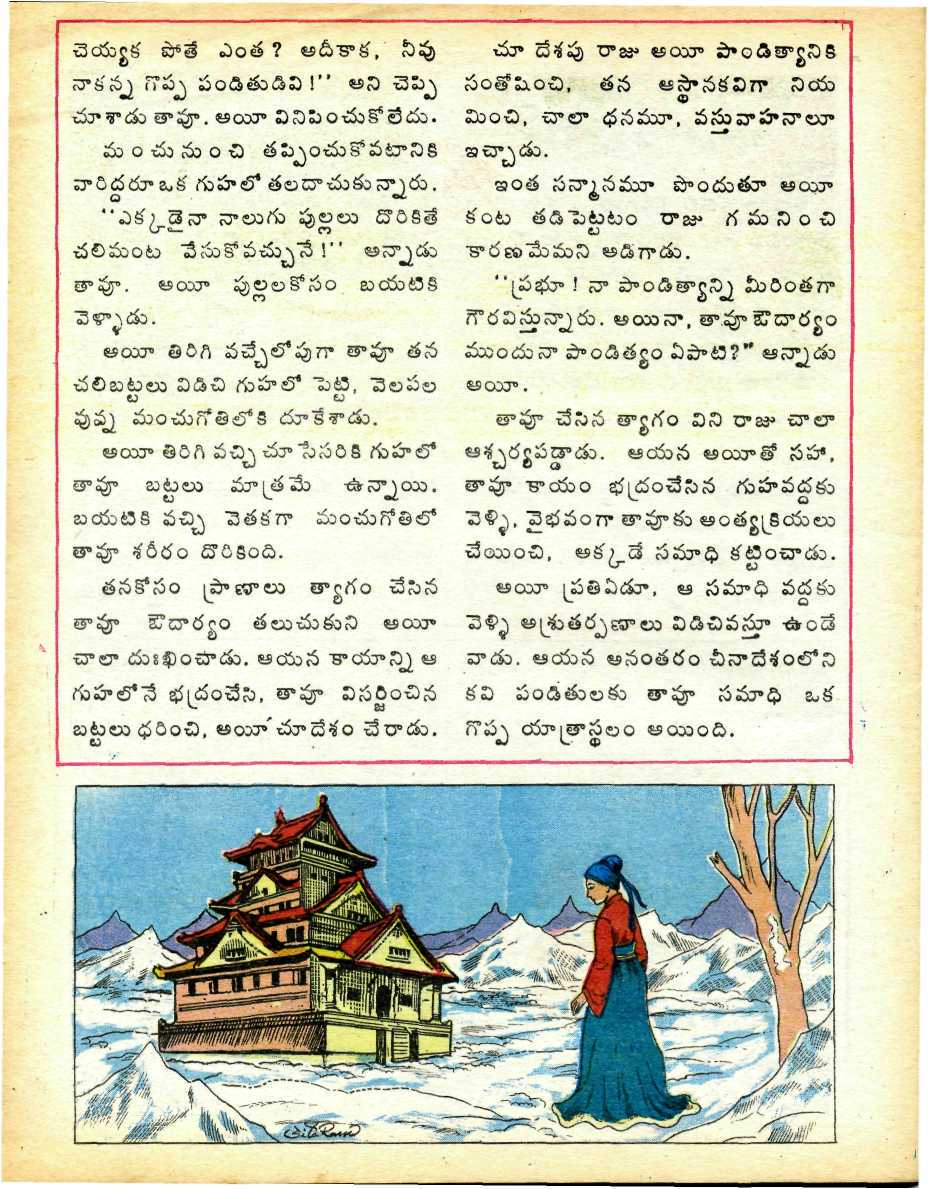 చెయ్యక పోతే ఎంత? అదీకాక, నీవు
నాకన్న గొప్ప పండితుడివి!'' అని చెప్పి
చూశాడు తావూ. అయీ వినిపించుకోలేదు.
మంచునుంచి తప్పించుకోవటానికి
వారిద్దరూ ఒక గుహలో తలదాచుకున్నారు.
''ఎక్కడైనా నాలుగు పుల్లలు దొరికితే
చలిమంట వేసుకోవచ్చునే!'' అన్నాడు
తావూ. అయీ పుల్లలకోసం బయటికి
వెళ్ళాడు.
అయీ తిరిగి వచ్చేలోపుగా తావూ తన
చలిబట్టలు విడిచి గుహలో పెట్టి, వెలపల
వున్న మంచుగోతిలోకి దూకేశాడు.
అయీ తిరిగి వచ్చి చూసేసరికి గుహలో
తావూ బట్టలు మాత్రమే ఉన్నాయి.
బయటికి వచ్చి వెతకగా మంచుగోతిలో
తావూ శరీరం దొరికింది.
తనకోసం ప్రాణాలు త్యాగం చేసిన
తావూ ఔదార్యం తలుచుకుని అయీ
చాలా దుఃఖించాడు. ఆయన కాయాన్ని ఆ
గుహలోనే భద్రంచేసి, తావూ విసర్జించిన
బట్టలు ధరించి, అయీ చూదేశం చేరాడు.
చూ దేశపు రాజు అయీ పాండిత్యానికి
సంతోషించి, తన ఆస్థానకవిగా నియ
మించి, చాలా ధనమూ, వస్తువాహనాలూ
ఇచ్చాడు.
ఇంత సన్మానమూ పొందుతూ అయీ
కంట తడిపెట్టటం రాజు గమనించి
కారణమేమని అడిగాడు.
''ప్రభూ! నా పాండిత్యాన్ని మీరింతగా
గౌరవిస్తున్నారు. అయినా, తావూ ఔదార్యం
ముందునా పాండిత్యం ఏపాటి?" అన్నాడు
అయీ.
తావూ చేసిన త్యాగం విని రాజు చాలా
ఆశ్చర్యపడ్డాడు. ఆయన అయీతో సహా,
తావూ కాయం భద్రంచేసిన గుహవద్దకు
వెళ్ళి, వైభవంగా తావూకు అంత్యక్రియలు
చేయించి, అక్కడే సమాధి కట్టించాడు.
అయీ ప్రతిఏడూ, ఆ సమాధి వద్దకు
వెళ్ళి అశ్రుతర్పణాలు విడిచివస్తూ ఉండే
వాడు. ఆయన అనంతరం చీనాదేశంలోని
కవి పండితులకు తావూ సమాధి ఒక
గొప్ప యాత్రాస్థలం అయింది.